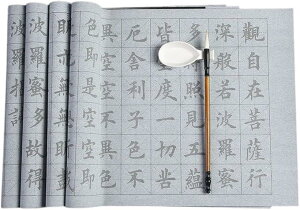 觀自在菩薩行
深般若波羅蜜
多照見五蘊
皆度一切
厄舍利子色不
異空空不異色
色即是空空即
波羅蜜多故得
波羅揭